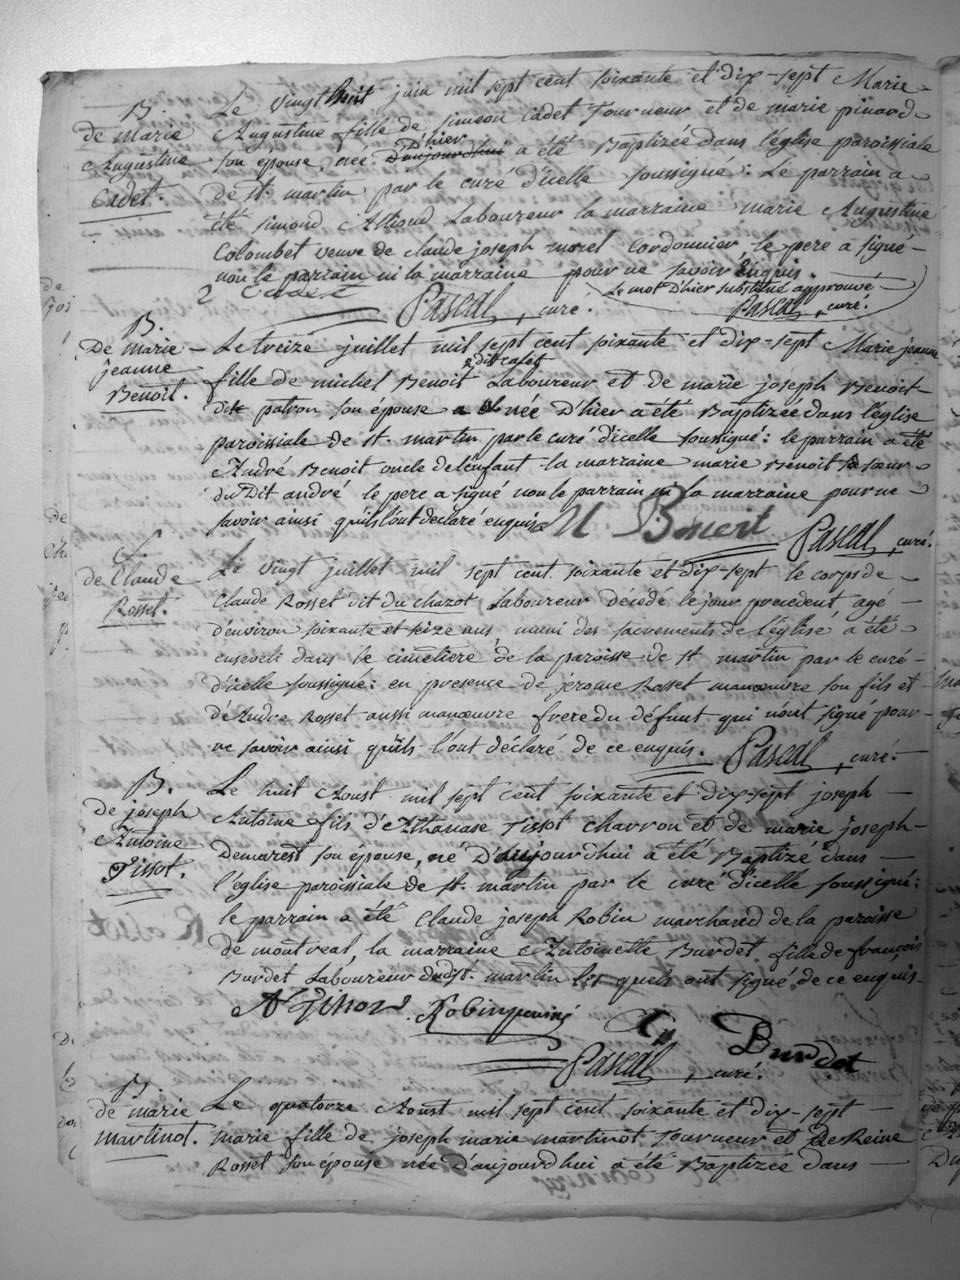 B.
de Marie
Augustine
Cadet.
Le vingt huit juin mil sept cent soixante et dix-sept Marie
Augustine fille de simeon Cadet Tourneur et de marie pinard
son épouse, née D'hier D'aujourdhui a été Baptizée dans l'église paroissiale
de st. martin par le curé d'icelle soussigné: Le parrain a
été simond Laboureur la marraine marie Augustine
Colombet veuve de claude joseph morel Cordonnier le pere a signé
non le parrain ni la marraine pour ne savoir Enquis.
Pascal, curé.
Le mot D'hier substitué approuvé
Pascal, curé.
B.
De marie
jeanne
Benoit.
Le treize juillet mil sept cent soixante et dix-sept Marie jeanne
fille de michel Benoit dit cadet Laboureur et de marie joseph Benoit
dit patron son épouse née D'hier a été Baptizée dans l'église
paroissiale de st. martin par le curé d'icelle soussigné: le parrain a été
André Benoit oncle de l'enfant la marraine marie Benoit sœur
du Dit andré le pere a signé non le parrain ni la marraine pour ne
savoir ainsi qu'ils l'ont declaré enquis
M Benoit Pascal, curé.
de Claude
Rosset.
Le vingt juillet mil sept cent soixante et dix-sept le corps de
Claude Rosset dit du chazot Laboureur décédé le jour precedent agé
d'environ soixante et seize ans, muni des sacrements de l'église a été
enseveli dans le cimetiere de la paroisse de st martin par le curé
d'icelle soussigné: en presence de jérome Rosset manœuvre son fils et
d'André Rosset aussi manœuvre frere du défunt qui n'ont signé pour
ne savoir ainsi qu'ils l'ont déclaré de ce enquis. Pascal, curé.
B.
de joseph
Antoine
Tissot.
Le huit Aoust mil sept cent soixante et dix-sept joseph
Antoine fils d'Athanase Tissot charron et de marie joseph
Demarest son épouse, né D'aujourdhui a été Baptizé dans
l'église paroissiale de st. martin par le curé d'icelle soussigné:
le parrain a été Claude joseph Robin marchand de la paroisse
de montreal, la marraine Antoinette Burdet fille de françois
Burdet Laboureur dudt st. martin les quels ont signé de ce enquis.
Burdet
Pascal, curé.
B.
de marie
martinot.
Le quatorze Aoust mil sept cent soixante et dix-sept
marie fille de joseph marie martinot Tourneur et de Reine
Rosset son épouse née d'aujourdhui a été Baptizée dans